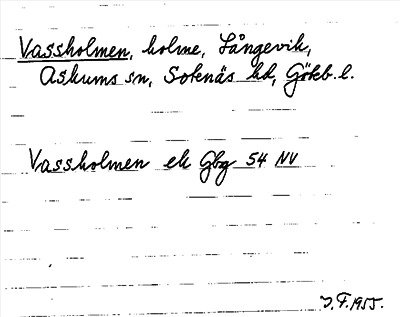 Vassholmen, holme, Långevik,
Askums sn, Sotenäs hd, Göteb. l.
Vassholmen ek Gbg 54 NV
J.F. 1955.